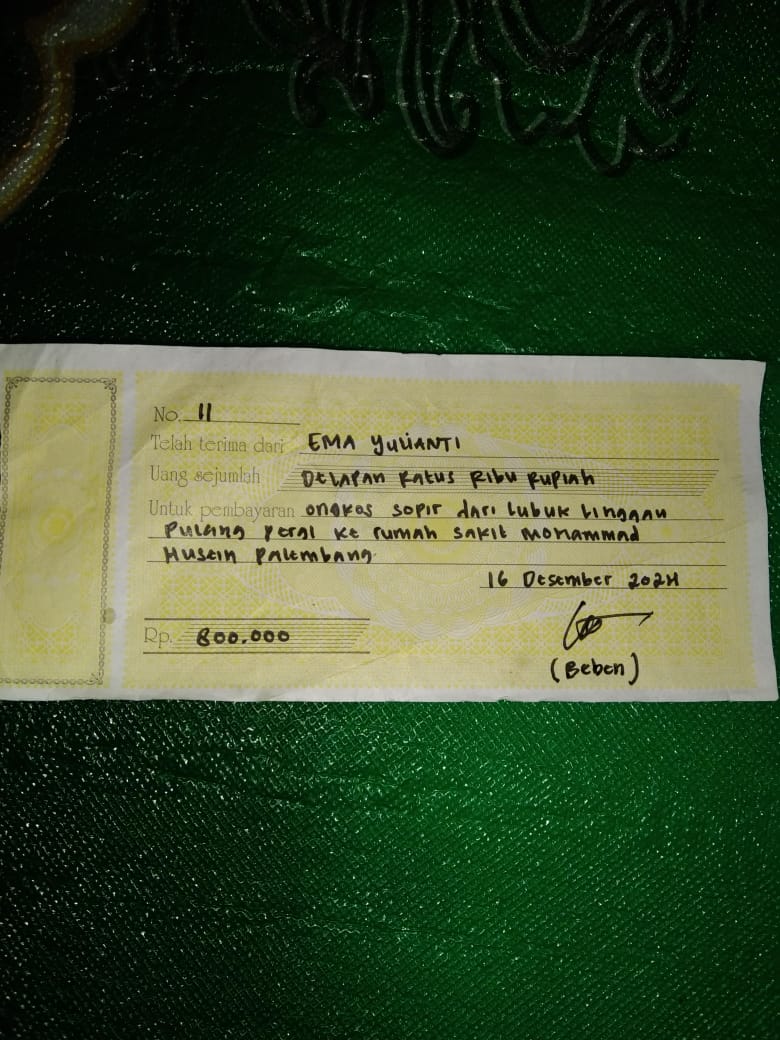 No. 11
Telah terima dari EMA YULIANTI
Uang sejumlah DELAPAN RATUS RIBU RUPIAH
Untuk pembayaran ongkos sopir dari Lubuk Linggau
Pulang Pergi ke rumah sakit Mohammad
Husein Palembang.
16 Desember 2024
Rp. 800.000
(Beben)